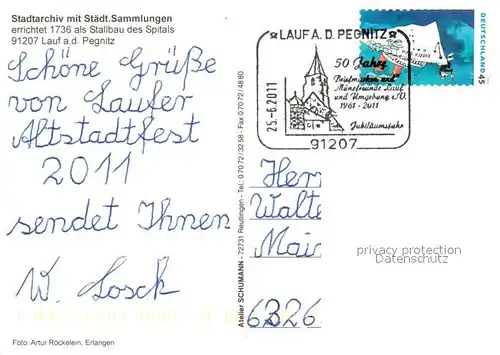 Stadtarchiv mit Städt.Sammlungen
errichtet 1736 als Stallbau des Spitals
91207 Lauf a.d. Pegnitz
Schöne Grüße
von Laufer
Altstadtfest
2011
sendet Ihnen
W. Losch
Foto: Artur Röckelein, Erlangen
Atelier SCHUMANN - 72731 Reutlingen - Tel.: 0 70 72 / 32 58 - Fax 0 70 72 / 48 80
LAUF A. D. PEGNITZ
50 Jahre
Briefmarken und
Münzfreunde Lauf
und Umgebung e.V.
1961 - 2011
Jubiläumsjahr
25.-6.2011
91207
DEUTSCHLAND 45
Herr
Walte
Mai
6326
privacy protection
Datenschutz